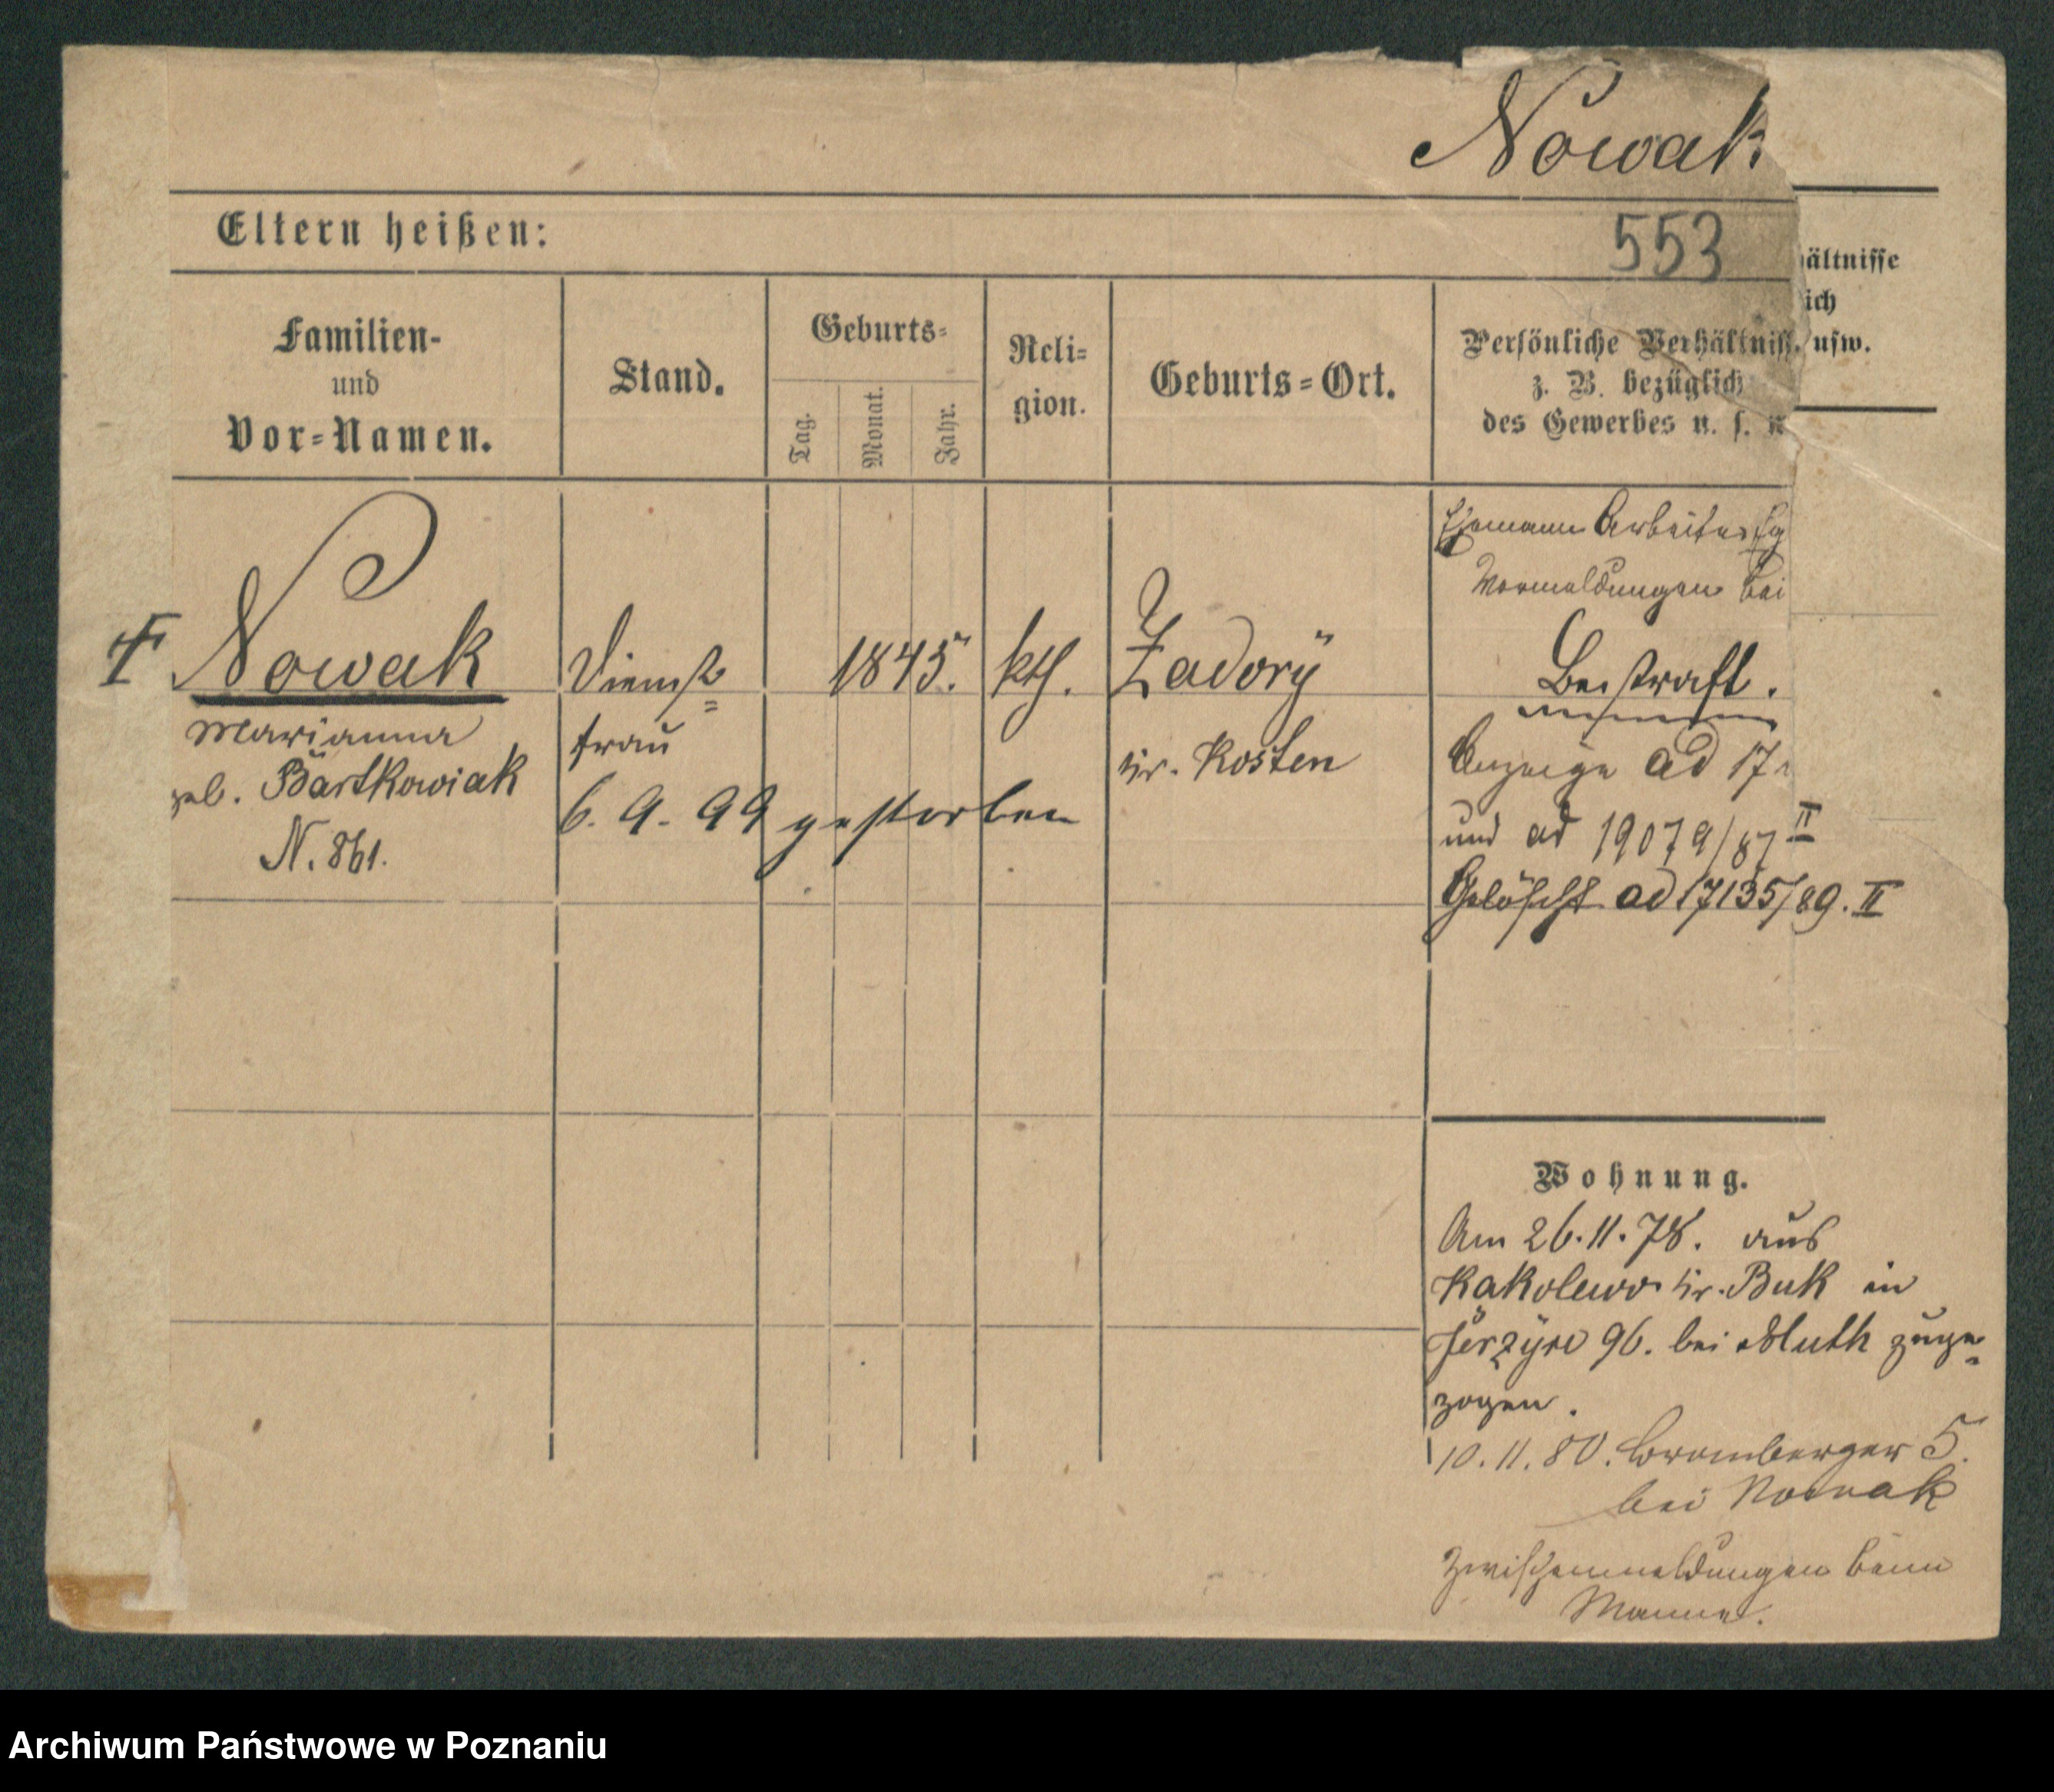 Nowak
Eltern heißen:
553
ältnisse
ich
usw.
Familien-
und
Vor-Namen.
Stand.
Geburts-
Tag.
Monat.
Jahr.
Reli-
gion.
Geburts-Ort.
Persönliche Verhältniss
z. B. bezüglich
des Gewerbes u. s.
Ehemann Arbeiter
Vormeldungen bei
Nowak
Marianna
geb. Bartkowiak
N. 861.
Dienst=
frau
1845.
kth.
Zadory
Kr. Kosten
6. 9. 99 gestorben
Bestraft.
Anzeige ad 17
und ad 19079/87 II
Gelöscht ad 17135/89. II
Wohnung.
Am 26.11.78. aus
Kakolewo Kr. Buk in
Jerzyce 96. bei Muth zuge=
zogen.
10.11.80. Bromberger 5.
bei Nowak
Zwischenmeldungen beim
Manne.
Archiwum Państwowe w Poznaniu